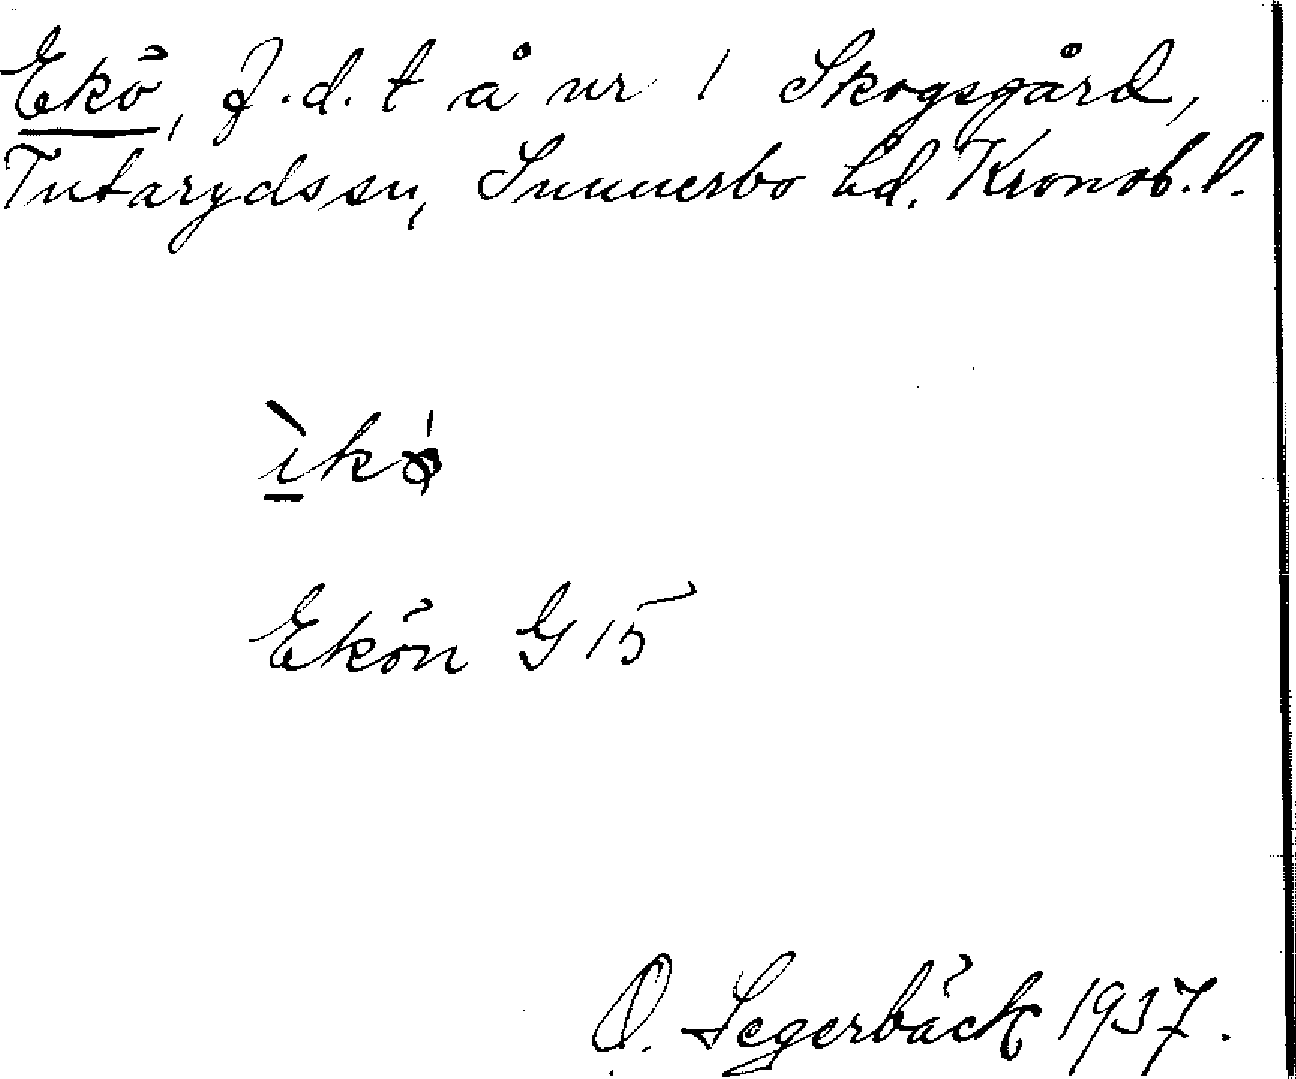 Ekö, f.d.t å nr 1 Skogsgård,
Tutarydssn, Sunnerbo hd. Kronob. l.
ìkǿ
Ekön G 15
O. Segerbäck 1937.